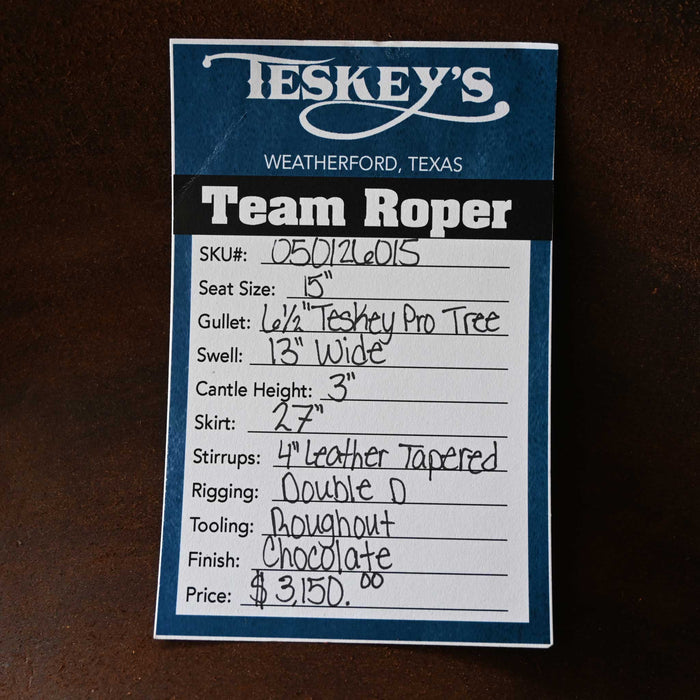 TESKEY'S
WEATHERFORD, TEXAS
Team Roper
SKU#: 050126015
Seat Size: 15"
Gullet: 6½" Teskey Pro Tree
Swell: 13" Wide
Cantle Height: 3"
Skirt: 27"
Stirrups: 4" Leather Tapered
Rigging: Double D
Tooling: Roughout
Finish: Chocolate
Price: $3,150.00